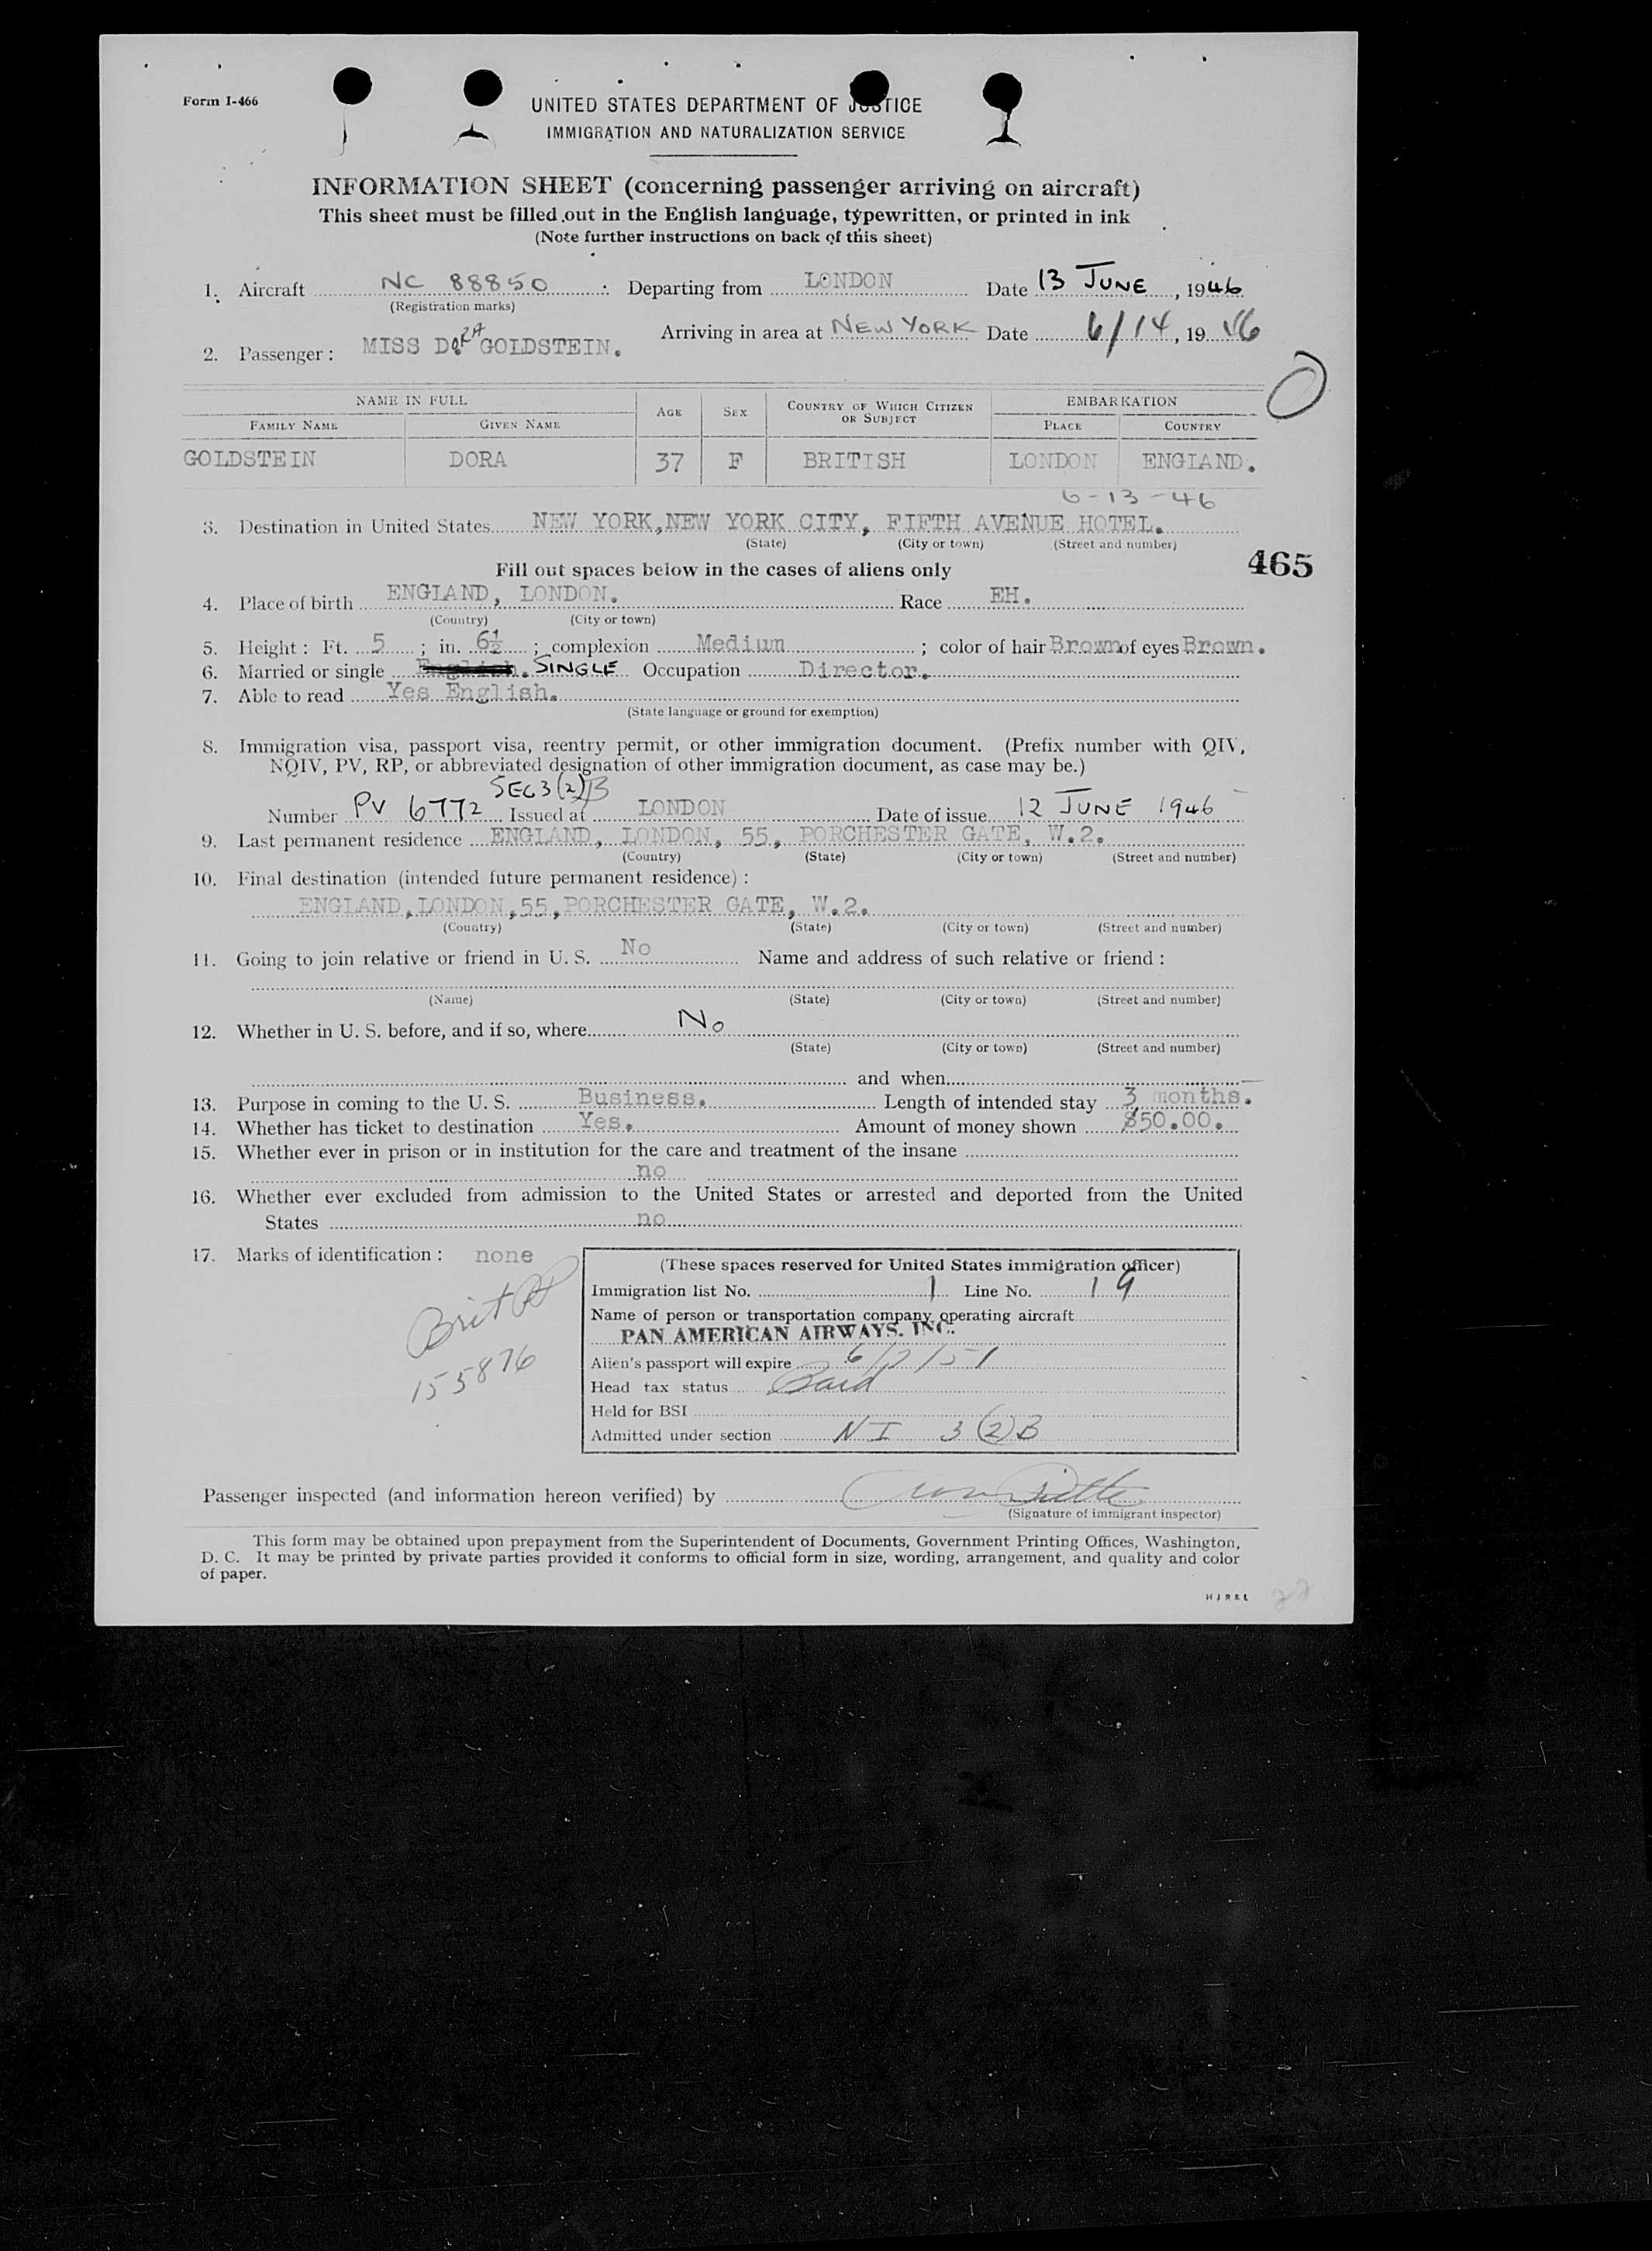 Form I-466
UNITED STATES DEPARTMENT OF JUSTICE
IMMIGRATION AND NATURALIZATION SERVICE
INFORMATION SHEET (concerning passenger arriving on aircraft)
This sheet must be filled out in the English language, typewritten, or printed in ink
(Note further instructions on back of this sheet)
1. Aircraft NC 88850 : Departing from LONDON Date 13 JUNE, 1946
(Registration marks)
Arriving in area at NEW YORK Date 6/14, 19 46
2. Passenger : MISS DORA GOLDSTEIN.
NAME IN FULL AGE SEX COUNTRY OF WHICH CITIZEN OR SUBJECT EMBARKATION
FAMILY NAME GIVEN NAME PLACE COUNTRY
GOLDSTEIN DORA 37 F BRITISH LONDON ENGLAND.
6-13-46
3. Destination in United States NEW YORK, NEW YORK CITY, FIFTH AVENUE HOTEL.
(State) (City or town) (Street and number)
465
Fill out spaces below in the cases of aliens only
4. Place of birth ENGLAND, LONDON. Race EH.
(Country) (City or town)
5. Height : Ft. 5 ; in. 6½ ; complexion Medium ; color of hair Brown of eyes Brown.
6. Married or single English. SINGLE Occupation Director.
7. Able to read Yes English.
(State language or ground for exemption)
8. Immigration visa, passport visa, reentry permit, or other immigration document. (Prefix number with QIV,
NQIV, PV, RP, or abbreviated designation of other immigration document, as case may be.)
SEC 3(2)B
Number PV 6772 Issued at LONDON Date of issue 12 JUNE 1946
9. Last permanent residence ENGLAND, LONDON, 55, PORCHESTER GATE, W.2.
(Country) (State) (City or town) (Street and number)
10. Final destination (intended future permanent residence) :
ENGLAND, LONDON, 55, PORCHESTER GATE, W.2.
(Country) (State) (City or town) (Street and number)
11. Going to join relative or friend in U. S. No Name and address of such relative or friend :
(Name) (State) (City or town) (Street and number)
12. Whether in U. S. before, and if so, where No
(State) (City or town) (Street and number)
and when
13. Purpose in coming to the U. S. Business. Length of intended stay 3 months.
14. Whether has ticket to destination Yes. Amount of money shown $50.00.
15. Whether ever in prison or in institution for the care and treatment of the insane
no
16. Whether ever excluded from admission to the United States or arrested and deported from the United
States no
17. Marks of identification : none
Brit PP
155876
(These spaces reserved for United States immigration officer)
Immigration list No. 1 Line No. 19
Name of person or transportation company operating aircraft
PAN AMERICAN AIRWAYS. INC.
Alien's passport will expire 6/7/51
Head tax status Paid
Held for BSI
Admitted under section NI 3(2)B
Passenger inspected (and information hereon verified) by
(Signature of immigrant inspector)
This form may be obtained upon prepayment from the Superintendent of Documents, Government Printing Offices, Washington,
D. C. It may be printed by private parties provided it conforms to official form in size, wording, arrangement, and quality and color
of paper.
H J R & L
22